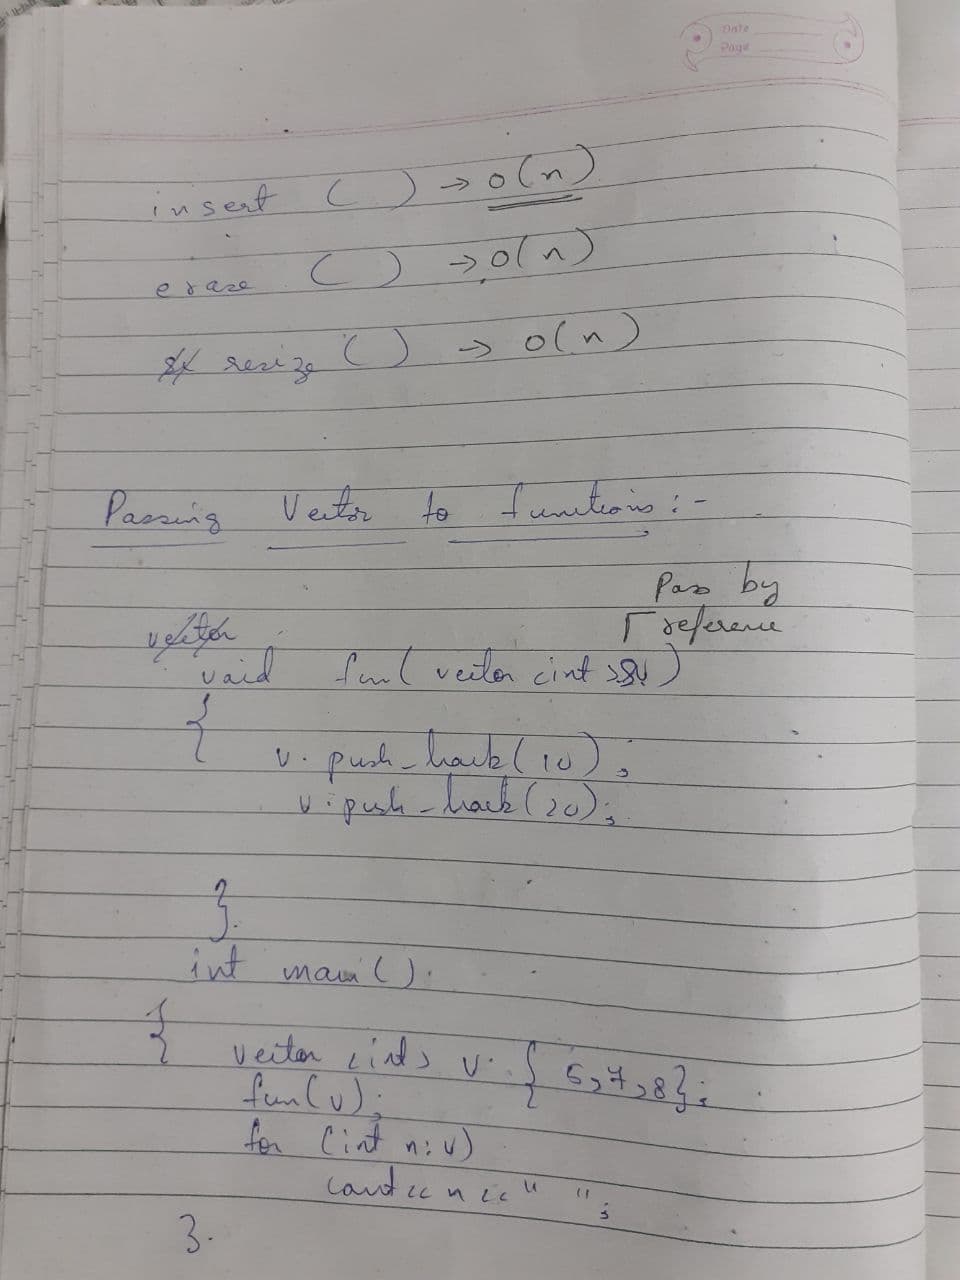 Date
Page
insert ( ) → O(n)
erase ( ) → O(n)
resize ( ) → O(n)
Passing Vector to functions :-
Pass by
reference
vector
void fun( vector <int> &v )
{
v. push_back( 10 ) ;
v. push_back( 20 ) ;
}
int main( )
{
vector <int> v { 5,7,8};
fun(v);
for (int n:v)
cout << n << " " ;
}